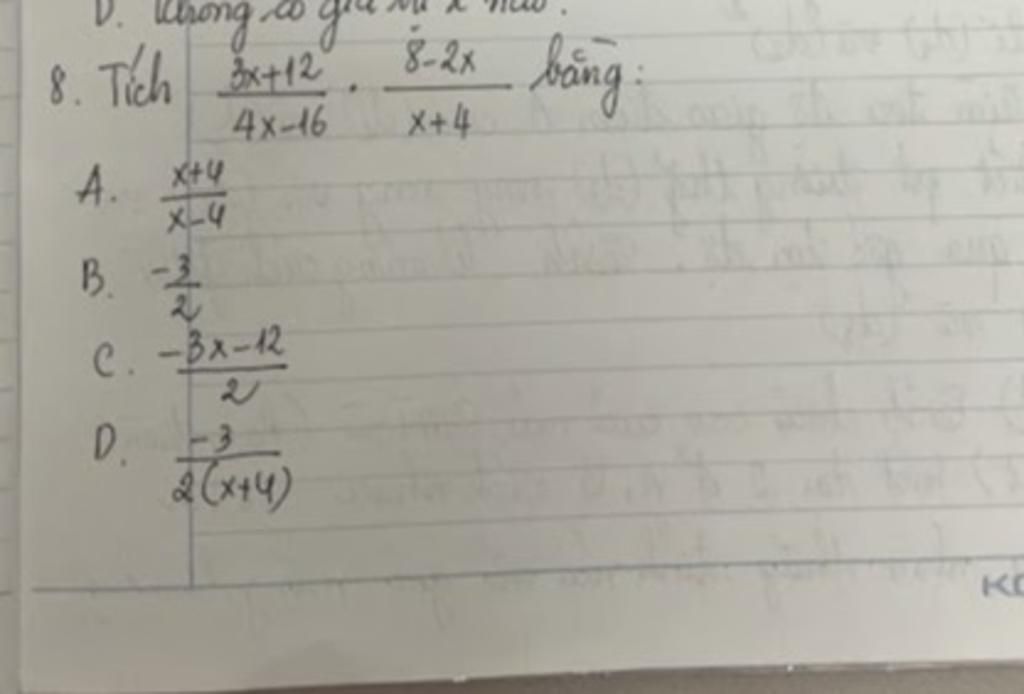 D. Không có giá trị x nào.
8. Tích \frac{3x+12}{4x-16} \cdot \frac{8-2x}{x+4} bằng:
A. \frac{x+4}{x-4}
B. \frac{-3}{2}
C. \frac{-3x-12}{2}
D. \frac{-3}{2(x+4)}